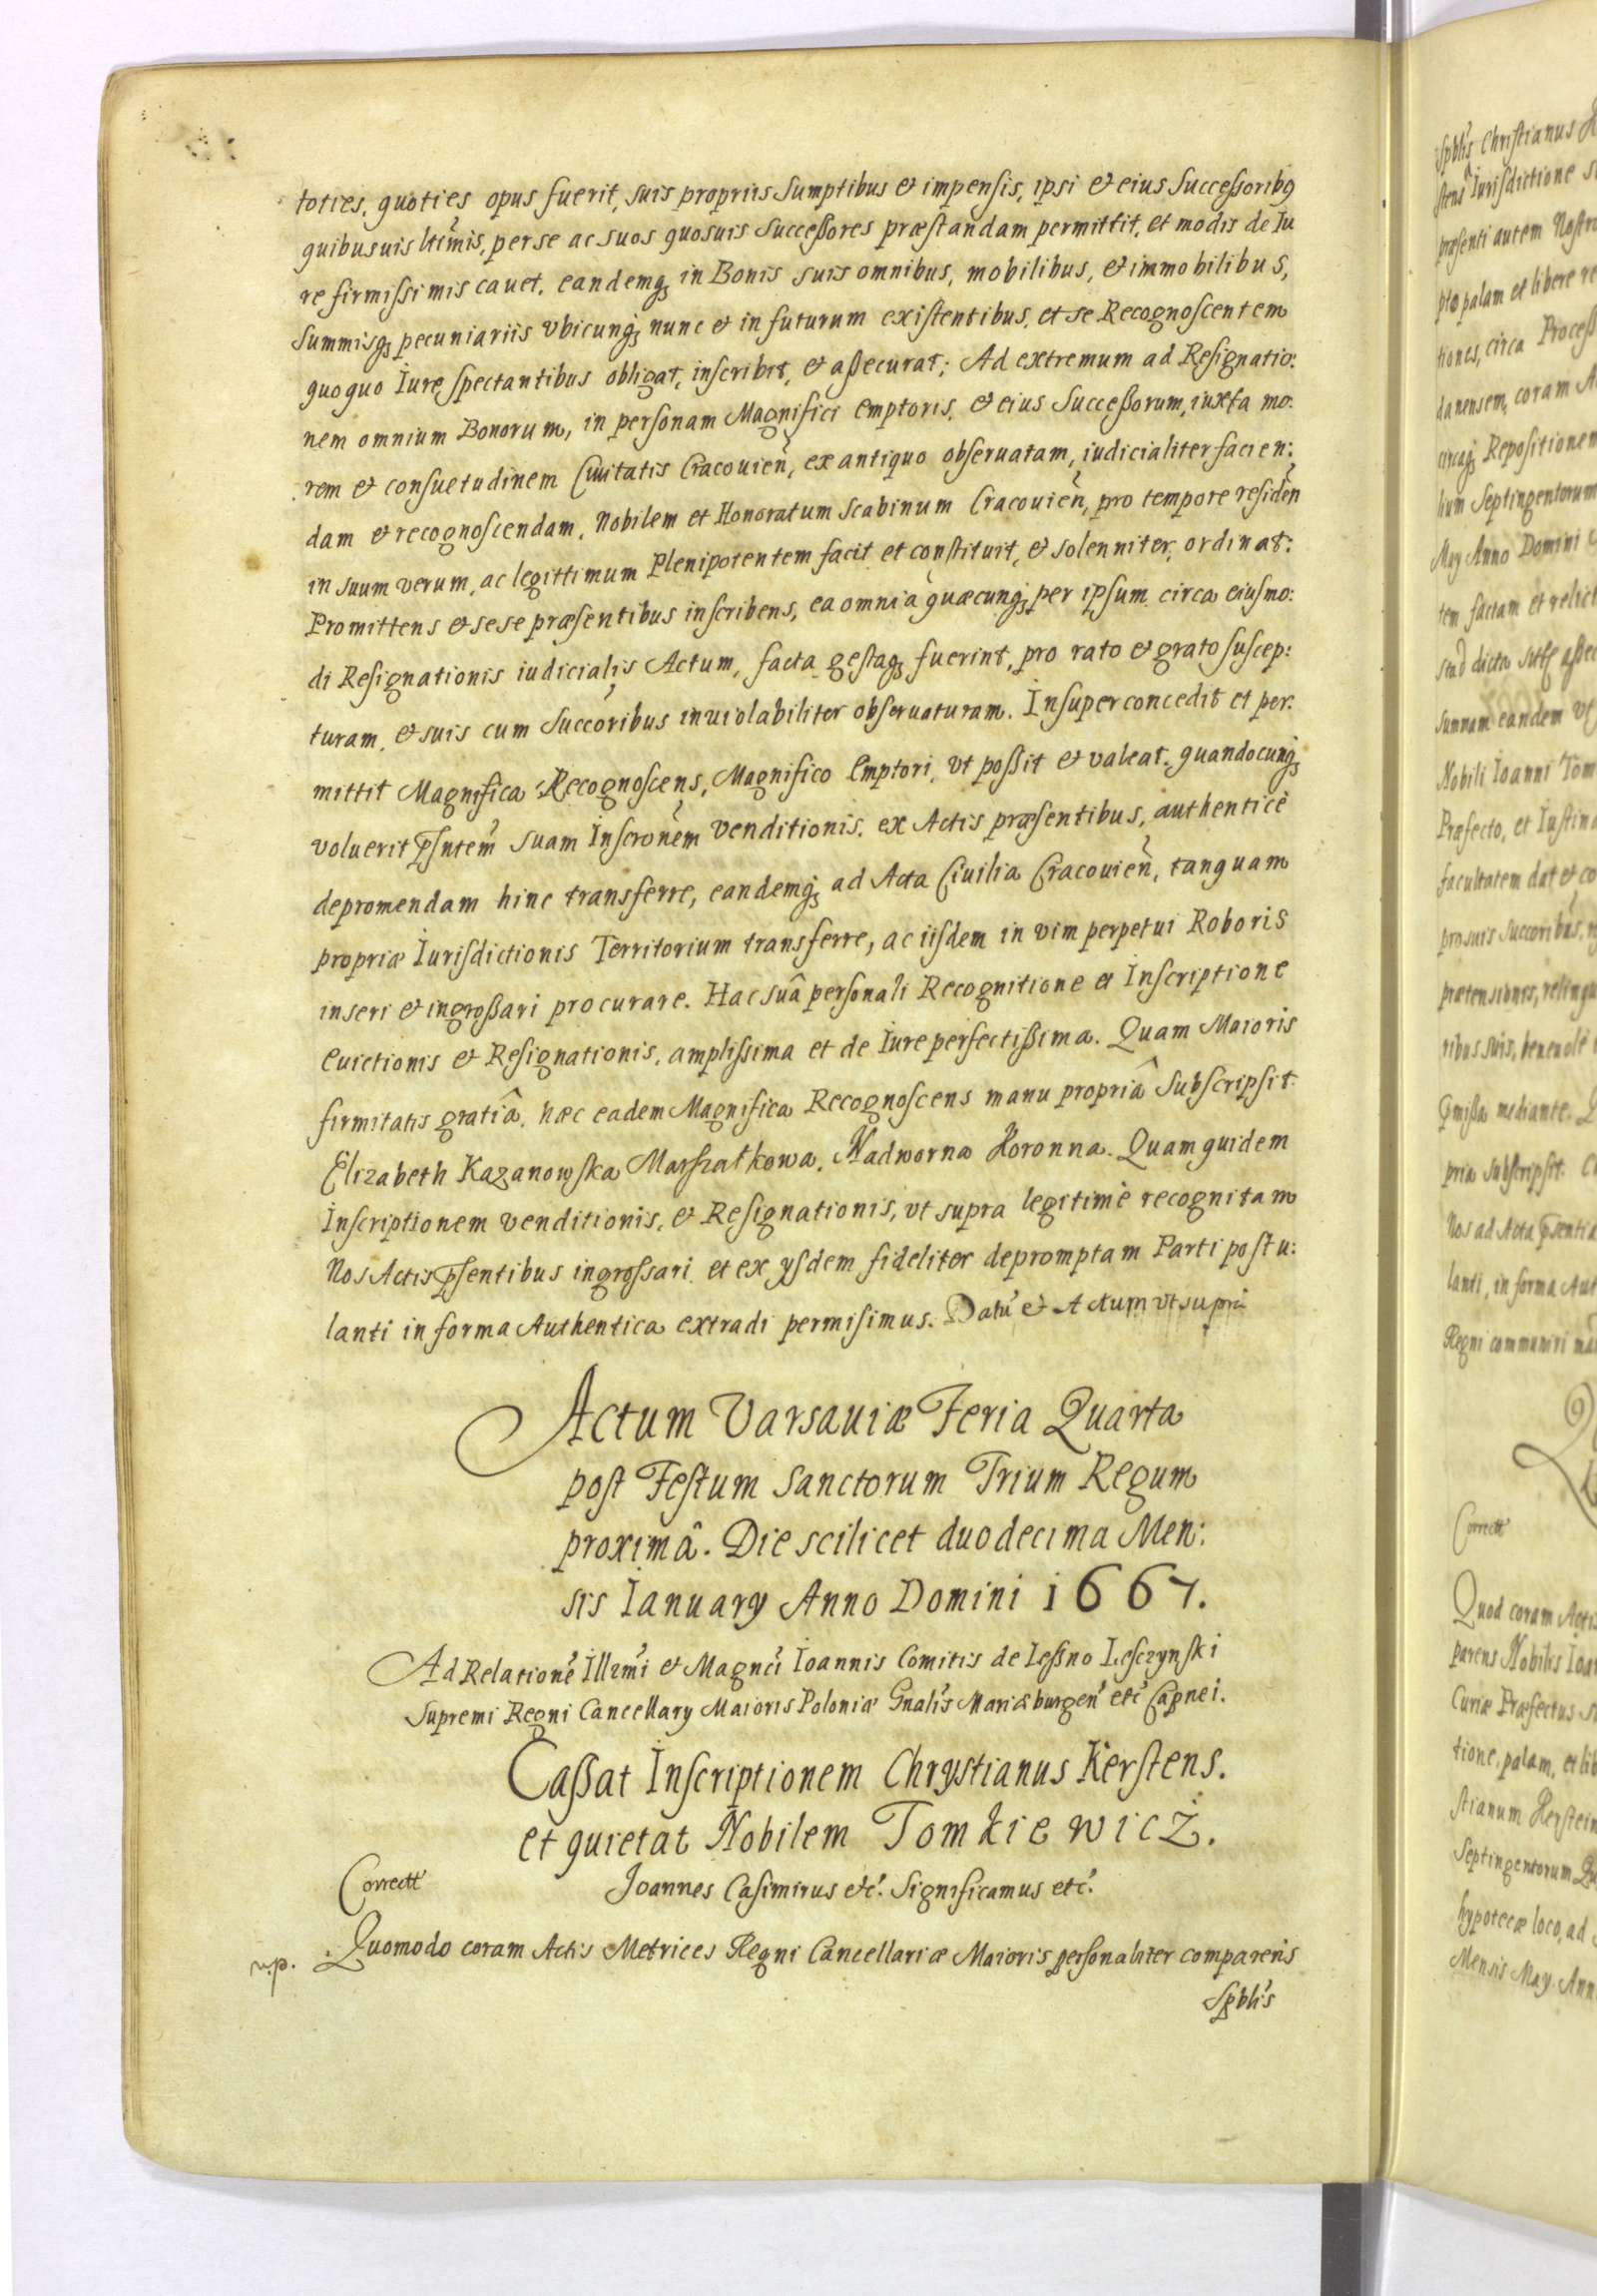 toties, quoties opus fuerit, suis propriis Sumptibus & impensis, ipsi & eius Successoribꝰ
quibusuis ltimis, per se ac suos quosuis Successores præstandam permittit, et modis de Iu
re firmissimis cauet, eandemqꝫ in Bonis suis omnibus, mobilibus, & immobilibus,
Summisqꝫ pecuniariis vbicunqꝫ nunc & in futurum existentibus, et se Recognoscentem
quoquo Iure spectantibus obligat, inscribit, & assecurat; Ad extremum ad Resignatio:
nem omnium Bonorum, in personam Magnifici Emptoris, & eius Successorum, iuxta mo:
rem & consuetudinem Ciuitatis Cracouien̄, ex antiquo obseruatam, iudicialiter facien:
dam & recognoscendam, Nobilem et Honoratum Scabinum Cracouien̄, pro tempore residen̄
in suum verum, ac legittimum Plenipotentem facit et constituit, & solenniter ordinat:
Promittens & sese præsentibus inscribens, ea omnia quæcunqꝫ per ipsum circa eiusmo:
di Resignationis iudicialis Actum, facta gestaqꝫ fuerint, pro rato & grato suscep:
turam, & suis cum Succoribus inuiolabiliter obseruaturam. Insuper concedit et per:
mittit Magnifica Recognoscens, Magnifico Emptori, vt possit & valeat, quandocunqꝫ
voluerit p̄sntem suam Inscronem Venditionis, ex Actis præsentibus, authenticè
depromendam hinc transferre, eandemqꝫ ad Acta Ciuilia Cracouien̄, tanquam
propriæ Iurisdictionis Territorium transferre, ac iisdem in vim perpetui Roboris
inseri & ingrossari procurare. Hac suâ personali Recognitione et Inscriptione
Euictionis & Resignationis, amplissima et de Iure perfectissima. Quam Maioris
firmitatis gratiâ, hæc eadem Magnifica Recognoscens manu propriâ Subscripsit
Elizabeth Kazanowska Marszałkowa, Nadworna Koronna. Quam quidem
Inscriptionem venditionis, & Resignationis, vt supra legitimè recognitam
Nos Actis p̄sentibus ingrossari, et ex ysdem fideliter depromptam Parti postu:
lanti in forma Authentica extradi permisimus. Datū & Actum vt supra
Actum Varsauiæ Feria Quarta
post Festum Sanctorum Trium Regum
proximâ. Die scilicet duodecima Men:
sis Ianuary Anno Domini 1667.
Ad Relationē Illrmi et Magnci Ioannis Comitis de Lessno Lesczynski
Supremi Regni Cancellary Maioris Poloniæ Gnalis Mariæburgen̄ etc̄ Capnei.
Cassat Inscriptionem Chrystianus Kerstens.
et quietat Nobilem Tomkiewicż.
Correctt
Joannes Casimirus etc̄. Significamus etc̄.
n.p. Quomodo coram Actis Metrices Regni Cancellariæ Maioris personaliter comparens
Spblis
Spblis Christianus
stens Iurisdictione
præsenti autem Nostro
palam et libere
tiones, circa Process
danensem, coram
circaqꝫ Repositionem
lium Septingentorum
May Anno Domini
tem factam et relict
summam eandem
Nobili Ioanni Tom
Præfecto, et Iustina
facultatem dat & co
pro suis Succoribus,
prætensiones, relinqu
ribus suis, beneuolè
p̄missa mediante.
pria subscripsit.
Nos ad Acta p̄sentia
lanti, in forma Aut
Regni communiri
Correctt
Quod coram Actis
parens Nobilis Ioan
Curiæ Præfectus
tione, palam, et lib
stianum Kerstein
Septingentorum
hypotecæ loco, ad
Mensis May Ann